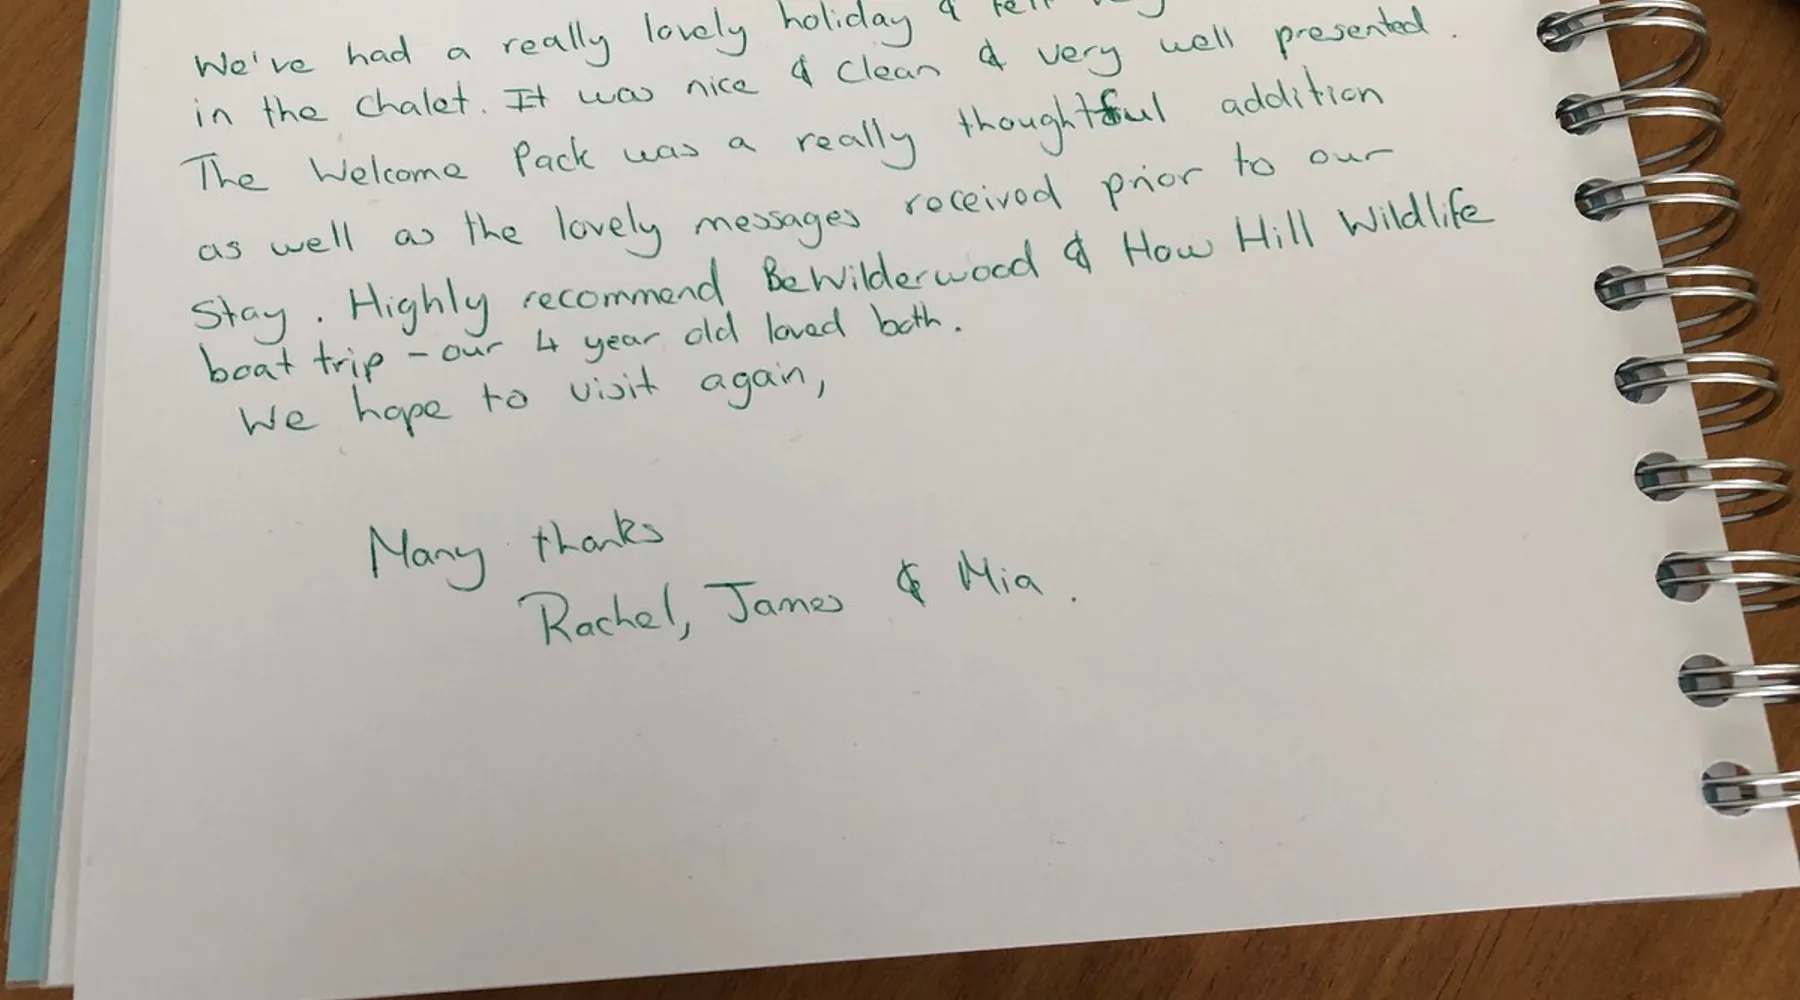 We've had a really lovely holiday & felt
in the chalet. It was nice & clean & very well presented.
The Welcome Pack was a really thoughtful addition
as well as the lovely messages received prior to our
Stay. Highly recommend BeWilderwood & How Hill Wildlife
boat trip - our 4 year old loved both.
We hope to visit again,
Many thanks
Rachel, James & Mia.